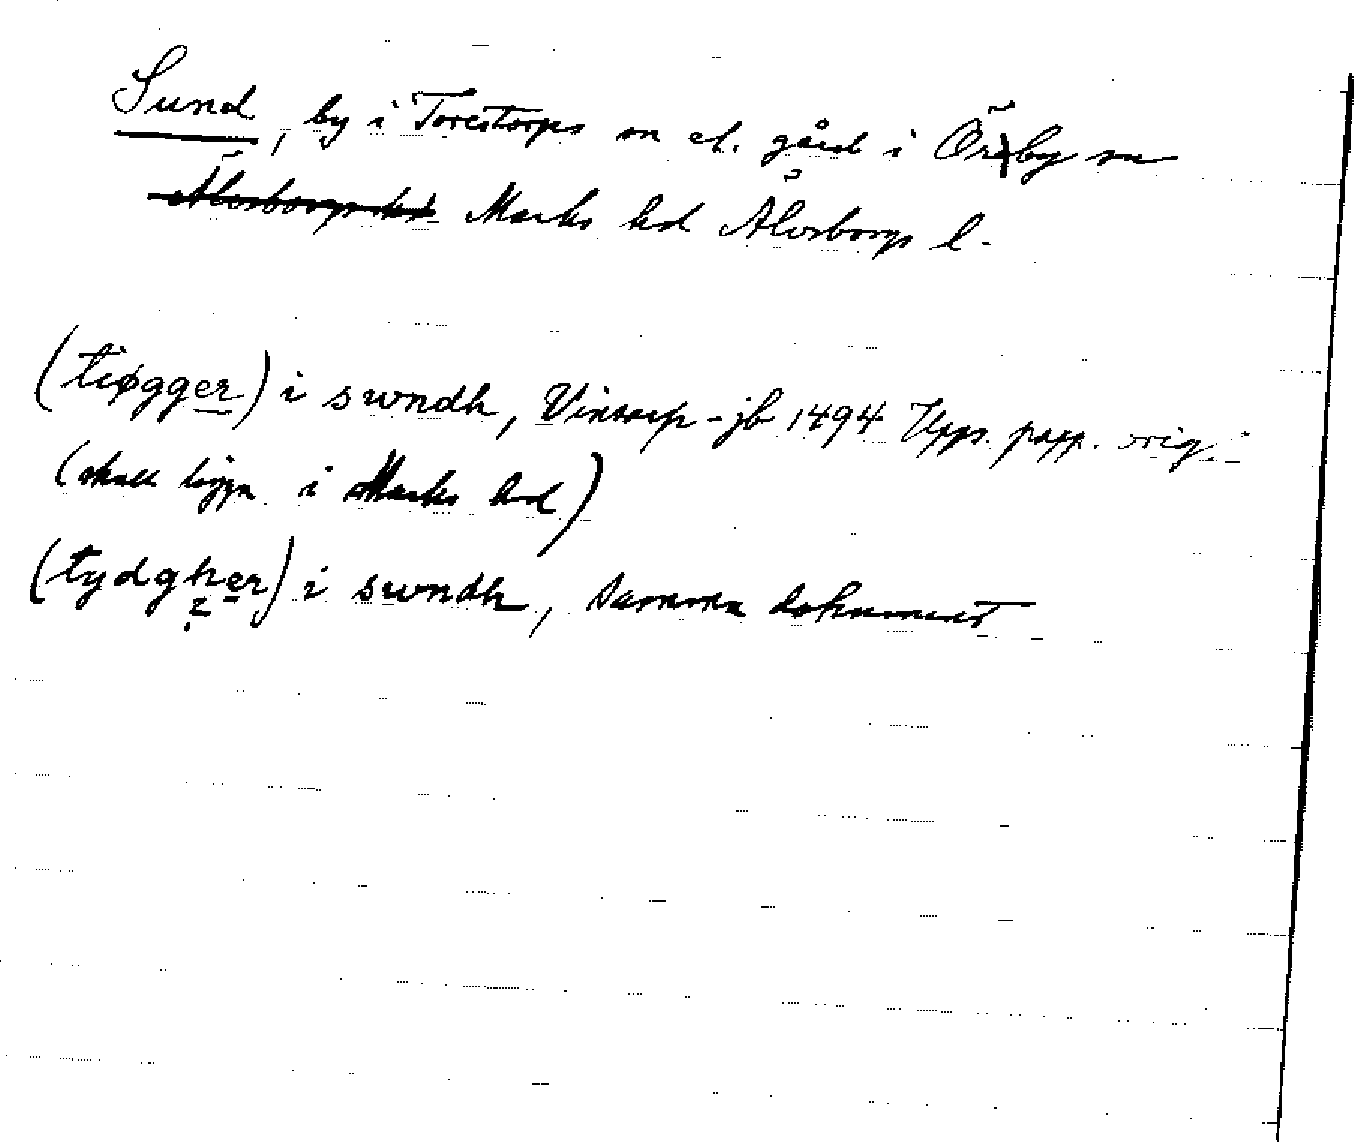 Sund, by i Torestorps sn el. gård i Örby sn
Älvsborgs l. Marks hd Älvsborgs l.
(tiøgger) i swndh, Vinstorp-jb 1494 Upps. papp. orig.
(skall ligga i Marks hd)
(tydgher) i swndh, samma dokument